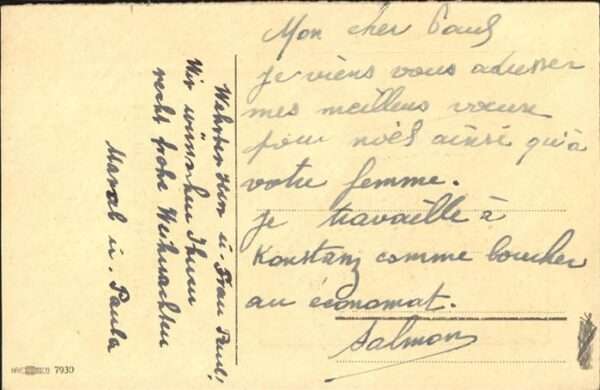 Mon cher Paul
je viens vous adresser
mes meilleurs vœux
pour noël ainsi qu'à
votre femme.
je travaille à
Konstanz comme boucher
au économat.
Salmon
Werter Herr u. Frau Paul!
Wir wünschen Ihnen
recht frohe Weihnachten
u. Paula
7930